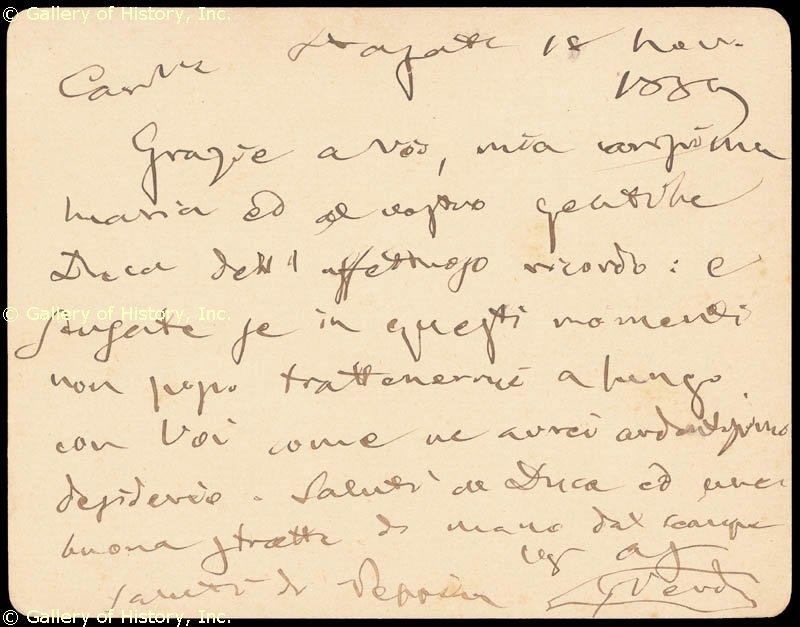 © Gallery of History, Inc.
S Agata 18 Nov.
1889
Grazie a Voi, mia carissima
Maria ed al vostro gentile
Duca dell' affettuoso ricordo: e
scusate se in questi momenti
© Gallery of History, Inc.
non posso trattenermi a lungo
con Voi come ne avrei ardentissimo
desiderio. Saluti al Duca ed una
buona stretta di mano dal sempre
vos af
Saluti di Peppina GVerdi
© Gallery of History, Inc.